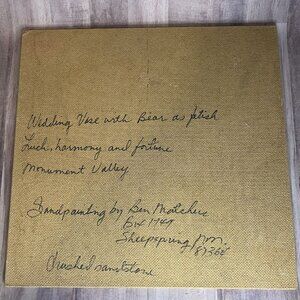 Wedding Vase with Bear as fetish
Luck, harmony and fortune
Monument Valley
Sandpainting by Ben
Box 1949
Sheepspring N.M.
87364
Crushed sandstone